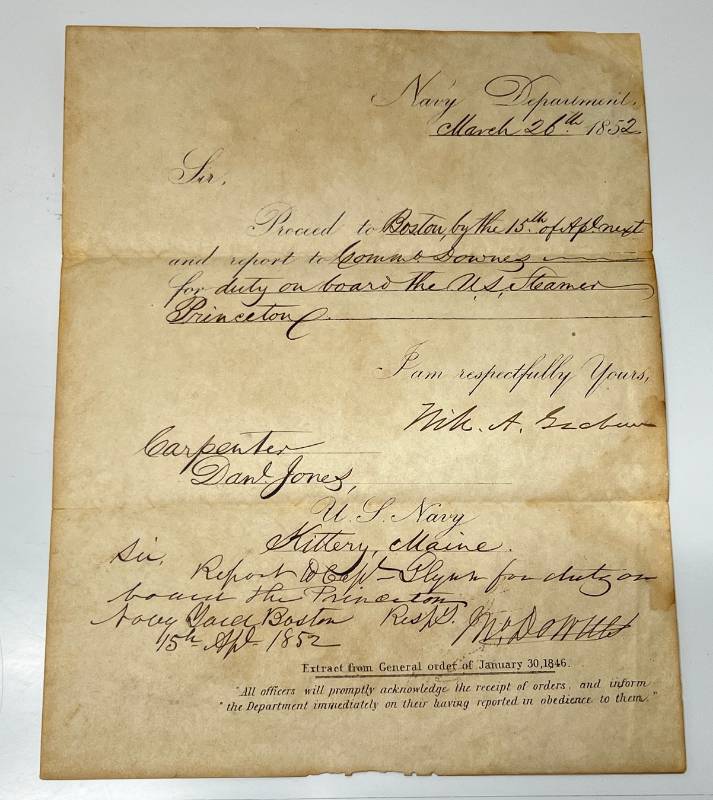 Navy Department,
March 26th. 1852
Sir,
Proceed to Boston, by the 15th. of Apl. next
and report to Commo. Downes
for duty on board the U.S. Steamer
Princeton
I am respectfully Yours,
Will. A. Graham
Carpenter
Danl. Jones,
U. S. Navy
Kittery, Maine.
Sir, Report to Capt. Glynn for duty on
board the Princeton
Navy Yard Boston Respy.
15th Apl. 1852 Jno. Downes
Extract from General order of January 30, 1846.
"All officers will promptly acknowledge the receipt of orders, and inform
"the Department immediately on their having reported in obedience to them."